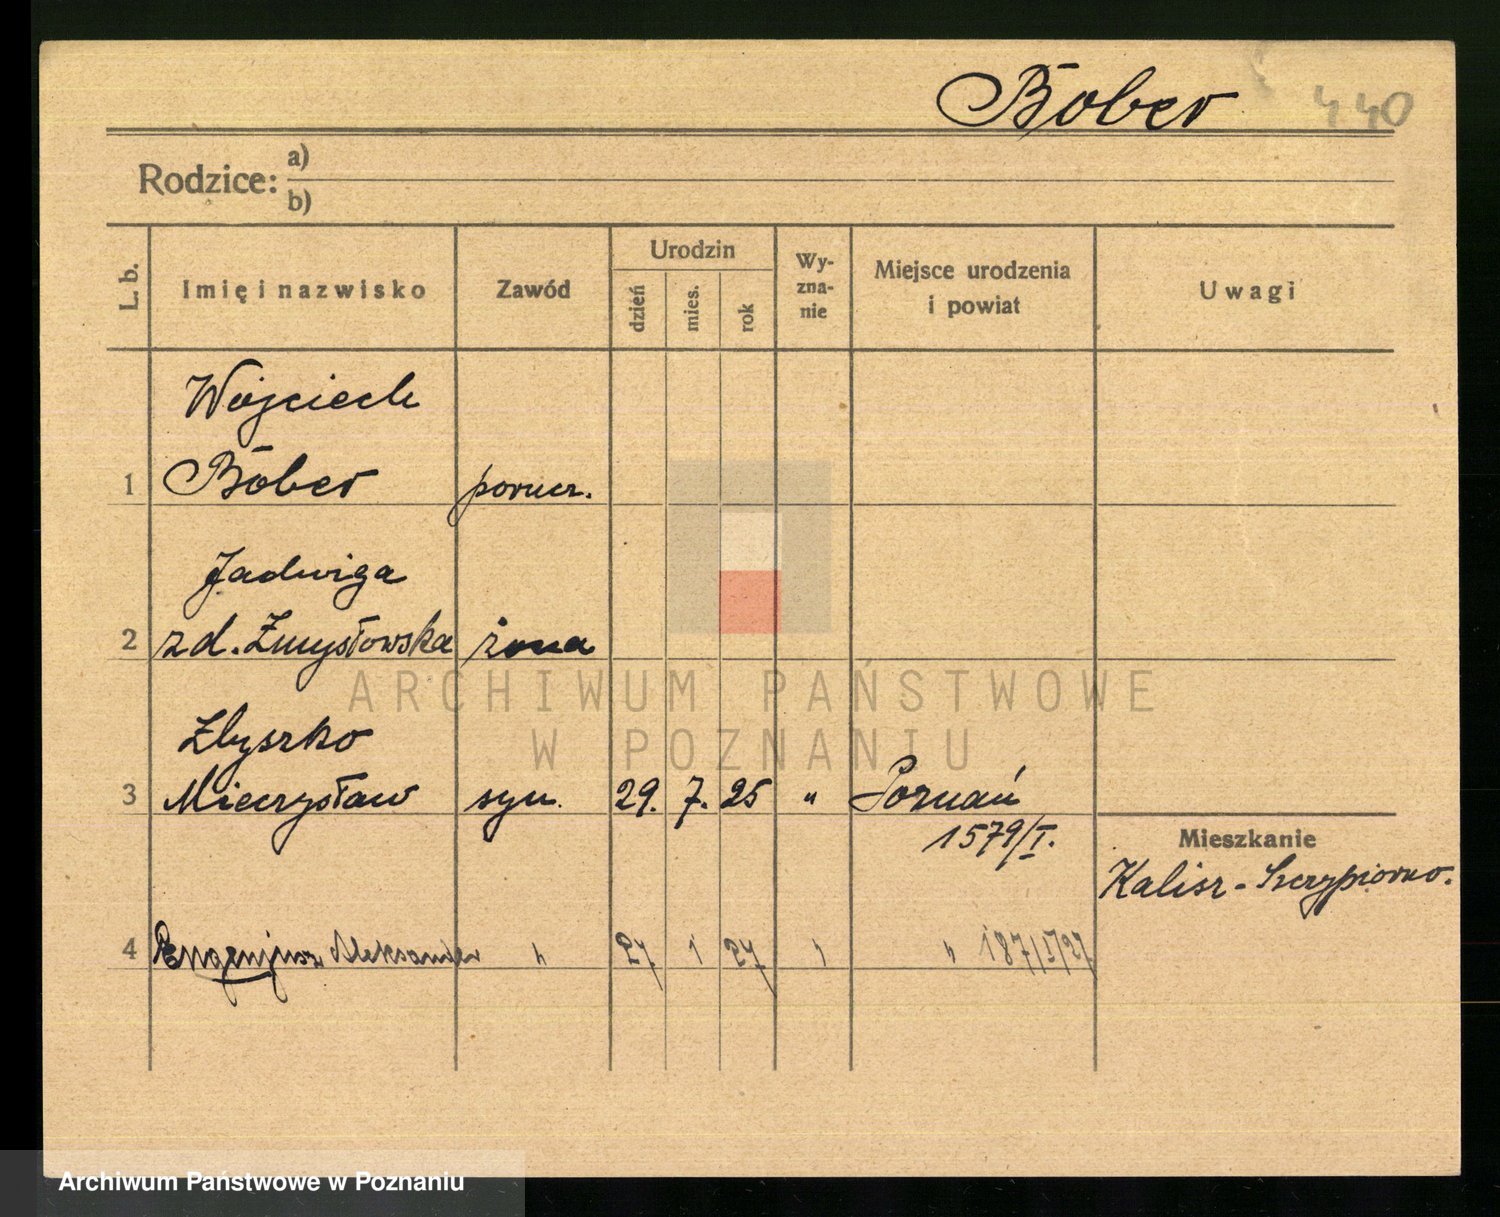 Bober 440
Rodzice: a)
b)
L. b. Imię i nazwisko Zawód Urodzin dzień mies. rok Wy-zna-nie Miejsce urodzenia i powiat Uwagi
Wojciech
1 Bober porucz.
Jadwiga
2 zd. Zmysłowska żona
Zbyszko
3 Mieczysław syn. 29. 7. 25 " Poznań
1579/I.
Mieszkanie
Kalisz-Szczypiorno.
4 Eugenjusz Aleksander " 27 1 27 " " 187/I/27
ARCHIWUM PAŃSTWOWE
W POZNANIU
Archiwum Państwowe w Poznaniu